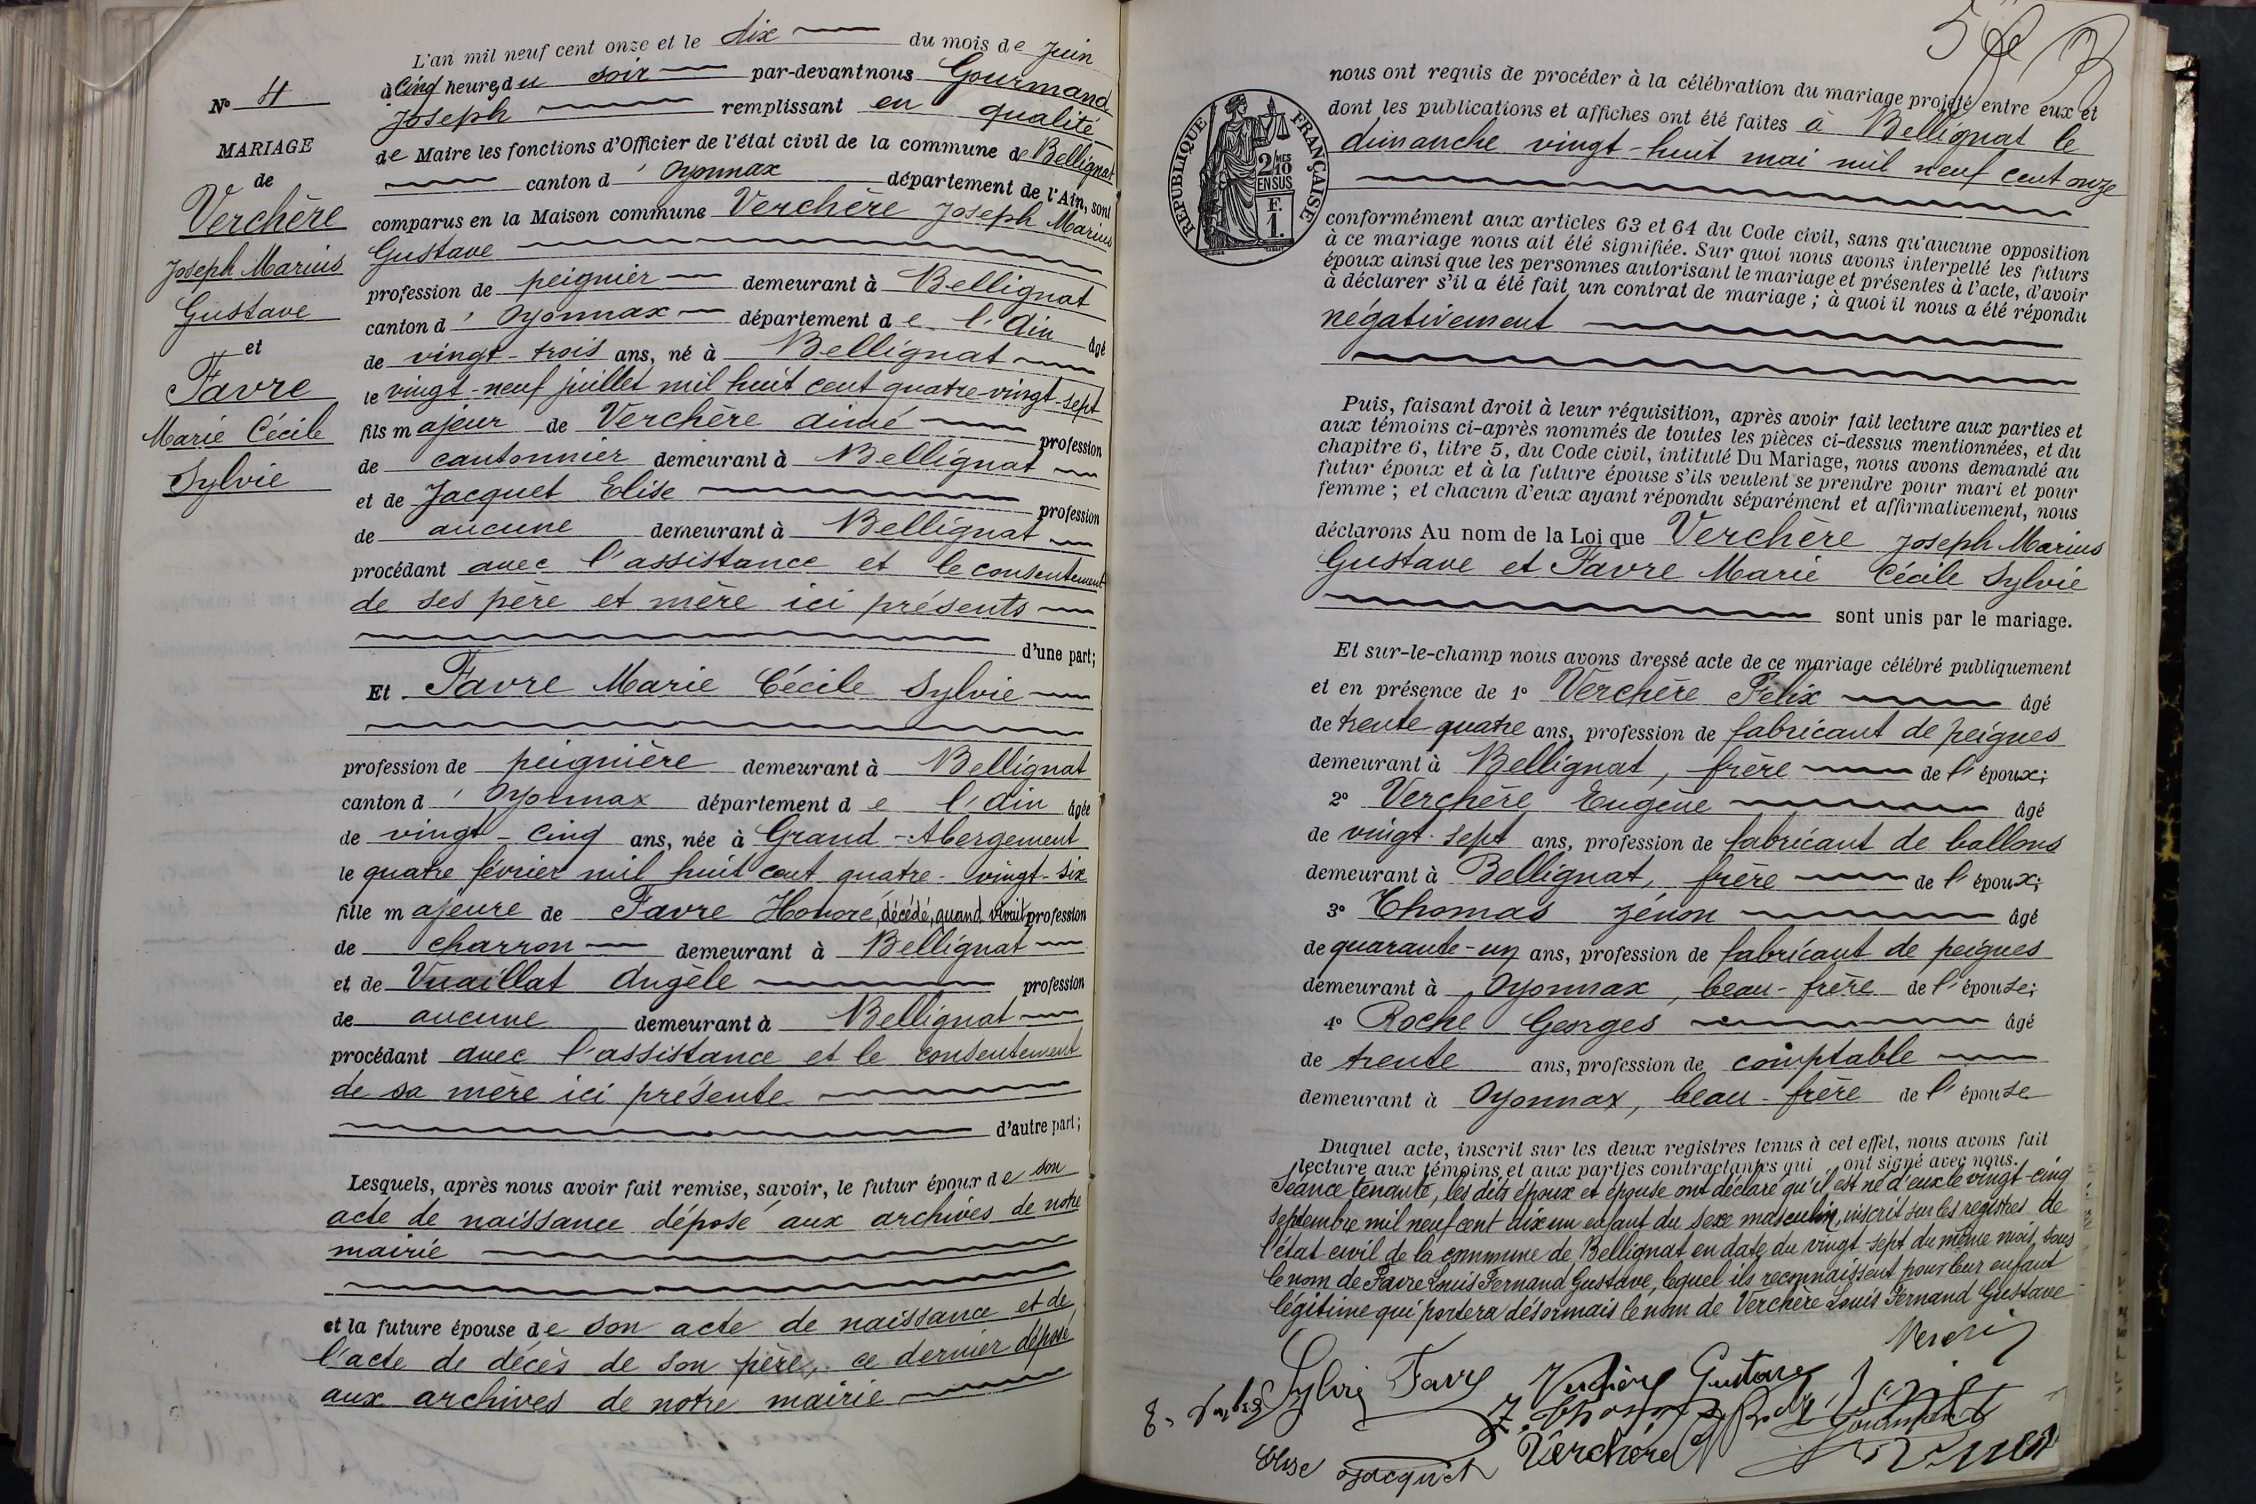 L'an mil neuf cent onze et le dix du mois de Juin
à cinq heures du soir par-devant nous Gourmand
Joseph remplissant en qualité
de Maire les fonctions d'Officier de l'état civil de la commune de Bellignat
canton d'Oyonnax département de l'Ain, sont
comparus en la Maison commune Verchère Joseph Marius
Gustave
profession de peignier demeurant à Bellignat
canton d'Oyonnax département de l'Ain âgé
de vingt-trois ans, né à Bellignat
le vingt-neuf juillet mil huit cent quatre-vingt-sept
fils majeur de Verchère Aimé profession
de cantonnier demeurant à Bellignat
et de Jacquet Elise profession
de aucune demeurant à Bellignat
procédant avec l'assistance et le consentement
de ses père et mère ici présents
d'une part;
Et Favre Marie Cécile Sylvie
profession de peignière demeurant à Bellignat
canton d'Oyonnax département de l'Ain âgée
de vingt-cinq ans, née à Grand-Abergement
le quatre février mil huit cent quatre-vingt-six
fille majeure de Favre Honoré, décédé, quand vivait profession
de charron demeurant à Bellignat
et de Vuaillat Angèle profession
de aucune demeurant à Bellignat
procédant avec l'assistance et le consentement
de sa mère ici présente
d'autre part;
Lesquels, après nous avoir fait remise, savoir, le futur époux de son
acte de naissance déposé aux archives de notre
mairie
et la future épouse de son acte de naissance et de
l'acte de décès de son père, ce dernier déposé
aux archives de notre mairie
N° 4
MARIAGE
de
Verchère
Joseph Marius
Gustave
et
Favre
Marie Cécile
Sylvie
RÉPUBLIQUE FRANÇAISE
2 MES
10
EN SUS
F.
1.
nous ont requis de procéder à la célébration du mariage projeté entre eux et
dont les publications et affiches ont été faites à Bellignat le
dimanche vingt-huit mai mil neuf cent onze
conformément aux articles 63 et 64 du Code civil, sans qu'aucune opposition
à ce mariage nous ait été signifiée. Sur quoi nous avons interpellé les futurs
époux ainsi que les personnes autorisant le mariage et présentes à l'acte, d'avoir
à déclarer s'il a été fait un contrat de mariage; à quoi il nous a été répondu
négativement
Puis, faisant droit à leur réquisition, après avoir fait lecture aux parties et
aux témoins ci-après nommés de toutes les pièces ci-dessus mentionnées, et du
chapitre 6, titre 5, du Code civil, intitulé Du Mariage, nous avons demandé au
futur époux et à la future épouse s'ils veulent se prendre pour mari et pour
femme; et chacun d'eux ayant répondu séparément et affirmativement, nous
déclarons Au nom de la Loi que Verchère Joseph Marius
Gustave et Favre Marie Cécile Sylvie
sont unis par le mariage.
Et sur-le-champ nous avons dressé acte de ce mariage célébré publiquement
et en présence de 1° Verchère Felix âgé
de trente quatre ans, profession de fabricant de peignes
demeurant à Bellignat, frère de l'époux;
2° Verchère Eugène âgé
de vingt-sept ans, profession de fabricant de ballons
demeurant à Bellignat, frère de l'époux;
3° Thomas Zénon âgé
de quarante-un ans, profession de fabricant de peignes
demeurant à Oyonnax, beau-frère de l'épouse;
4° Roche Georges âgé
de trente ans, profession de comptable
demeurant à Oyonnax, beau-frère de l'épouse
Duquel acte, inscrit sur les deux registres tenus à cet effet, nous avons fait
lecture aux témoins et aux parties contractantes qui ont signé avec nous.
Séance tenante, les dits époux et épouse ont déclaré qu'il est né d'eux le vingt-cinq
septembre mil neuf cent dix un enfant du sexe masculin, inscrit sur les registres de
l'état civil de la commune de Bellignat en date du vingt-sept du même mois, sous
le nom de Favre Louis Fernand Gustave, lequel ils reconnaissent pour leur enfant
légitime qui portera désormais le nom de Verchère Louis Fernand Gustave
Sylvie Favre Verchère Gustave
Z. Thomas
Elise Jacquet Verchère